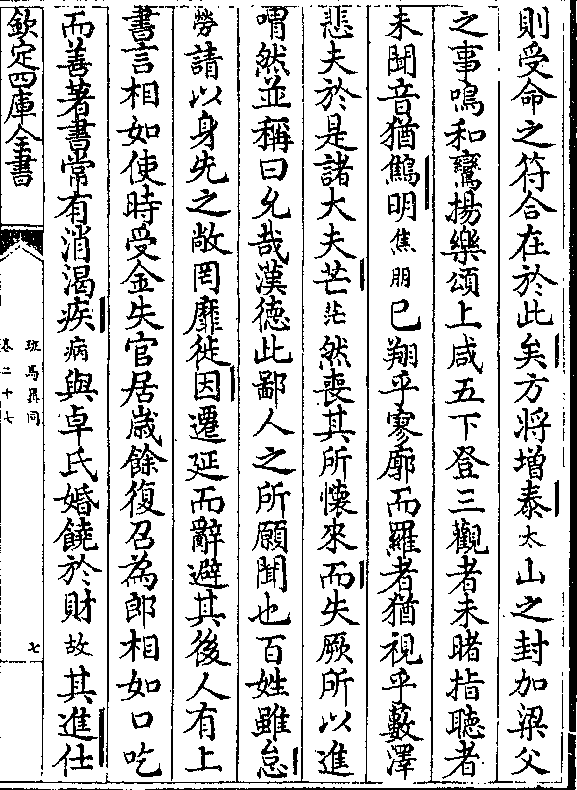 則受命之符合在於此矣方將增泰太山之封加梁父
之事鳴和鸞揚樂頌上咸五下登三觀者未睹指聽者
未聞音猶鷦明焦朋已翔乎寥廓而羅者猶視乎藪澤
悲夫於是諸大夫芒茫然喪其所懷來而失厥所以進
喟然並稱曰允哉漢德此鄙人之所願聞也百姓雖怠
勞請以身先之敞罔靡徙因遷延而辭避其後人有上
書言相如使時受金失官居歲餘復召為郎相如口吃
而善著書常有消渴疾病與卓氏婚饒於財故其進仕
欽定四庫全書
班馬異同
卷二十七
七